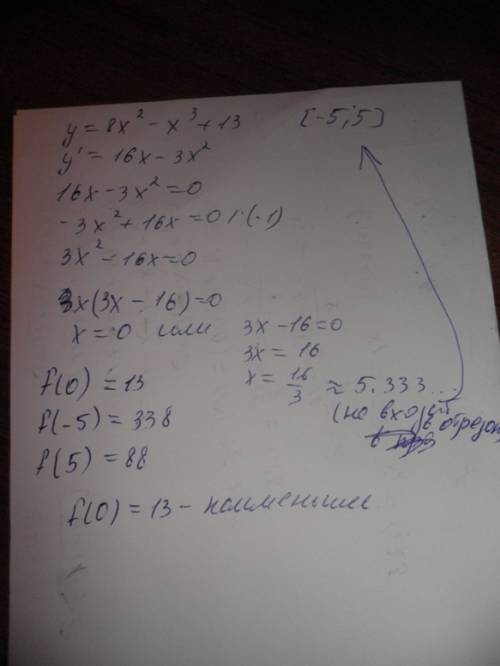 y = 8x² - x³ + 13 [-5; 5]
y' = 16x - 3x²
16x - 3x² = 0
-3x² + 16x = 0 | · (-1)
3x² - 16x = 0
x(3x - 16) = 0
x = 0 или 3x - 16 = 0
3x = 16
x = 16/3 ≈ 5.333...
(не входит
в отрезок
f(0) = 13
f(-5) = 338
f(5) = 88
f(0) = 13 - наименьшее